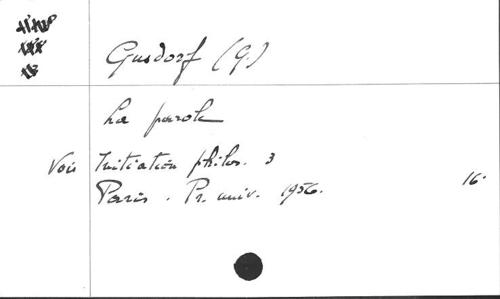 Gusdorf (G.)
La parole
Voir Initiation philos. 3
Paris. Pr. univ. 1956. 16.